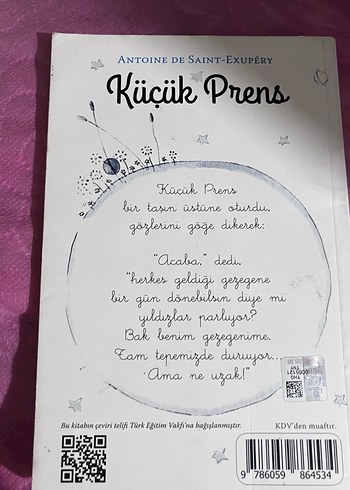 ANTOINE DE SAINT-EXUPÉRY
Küçük Prens
Küçük Prens
bir taşın üstüne oturdu,
gözlerini göğe dikerek:
"Acaba," dedi,
"herkes geldiği gezegene
bir gün dönebilsin diye mi
yıldızlar parlıyor?
Bak benim gezegenime.
Tam tepemizde duruyor...
Ama ne uzak!"
Bu kitabın çeviri telifi Türk Eğitim Vakfı'na bağışlanmıştır.
KDV'den muaftır.
9 786059 864534